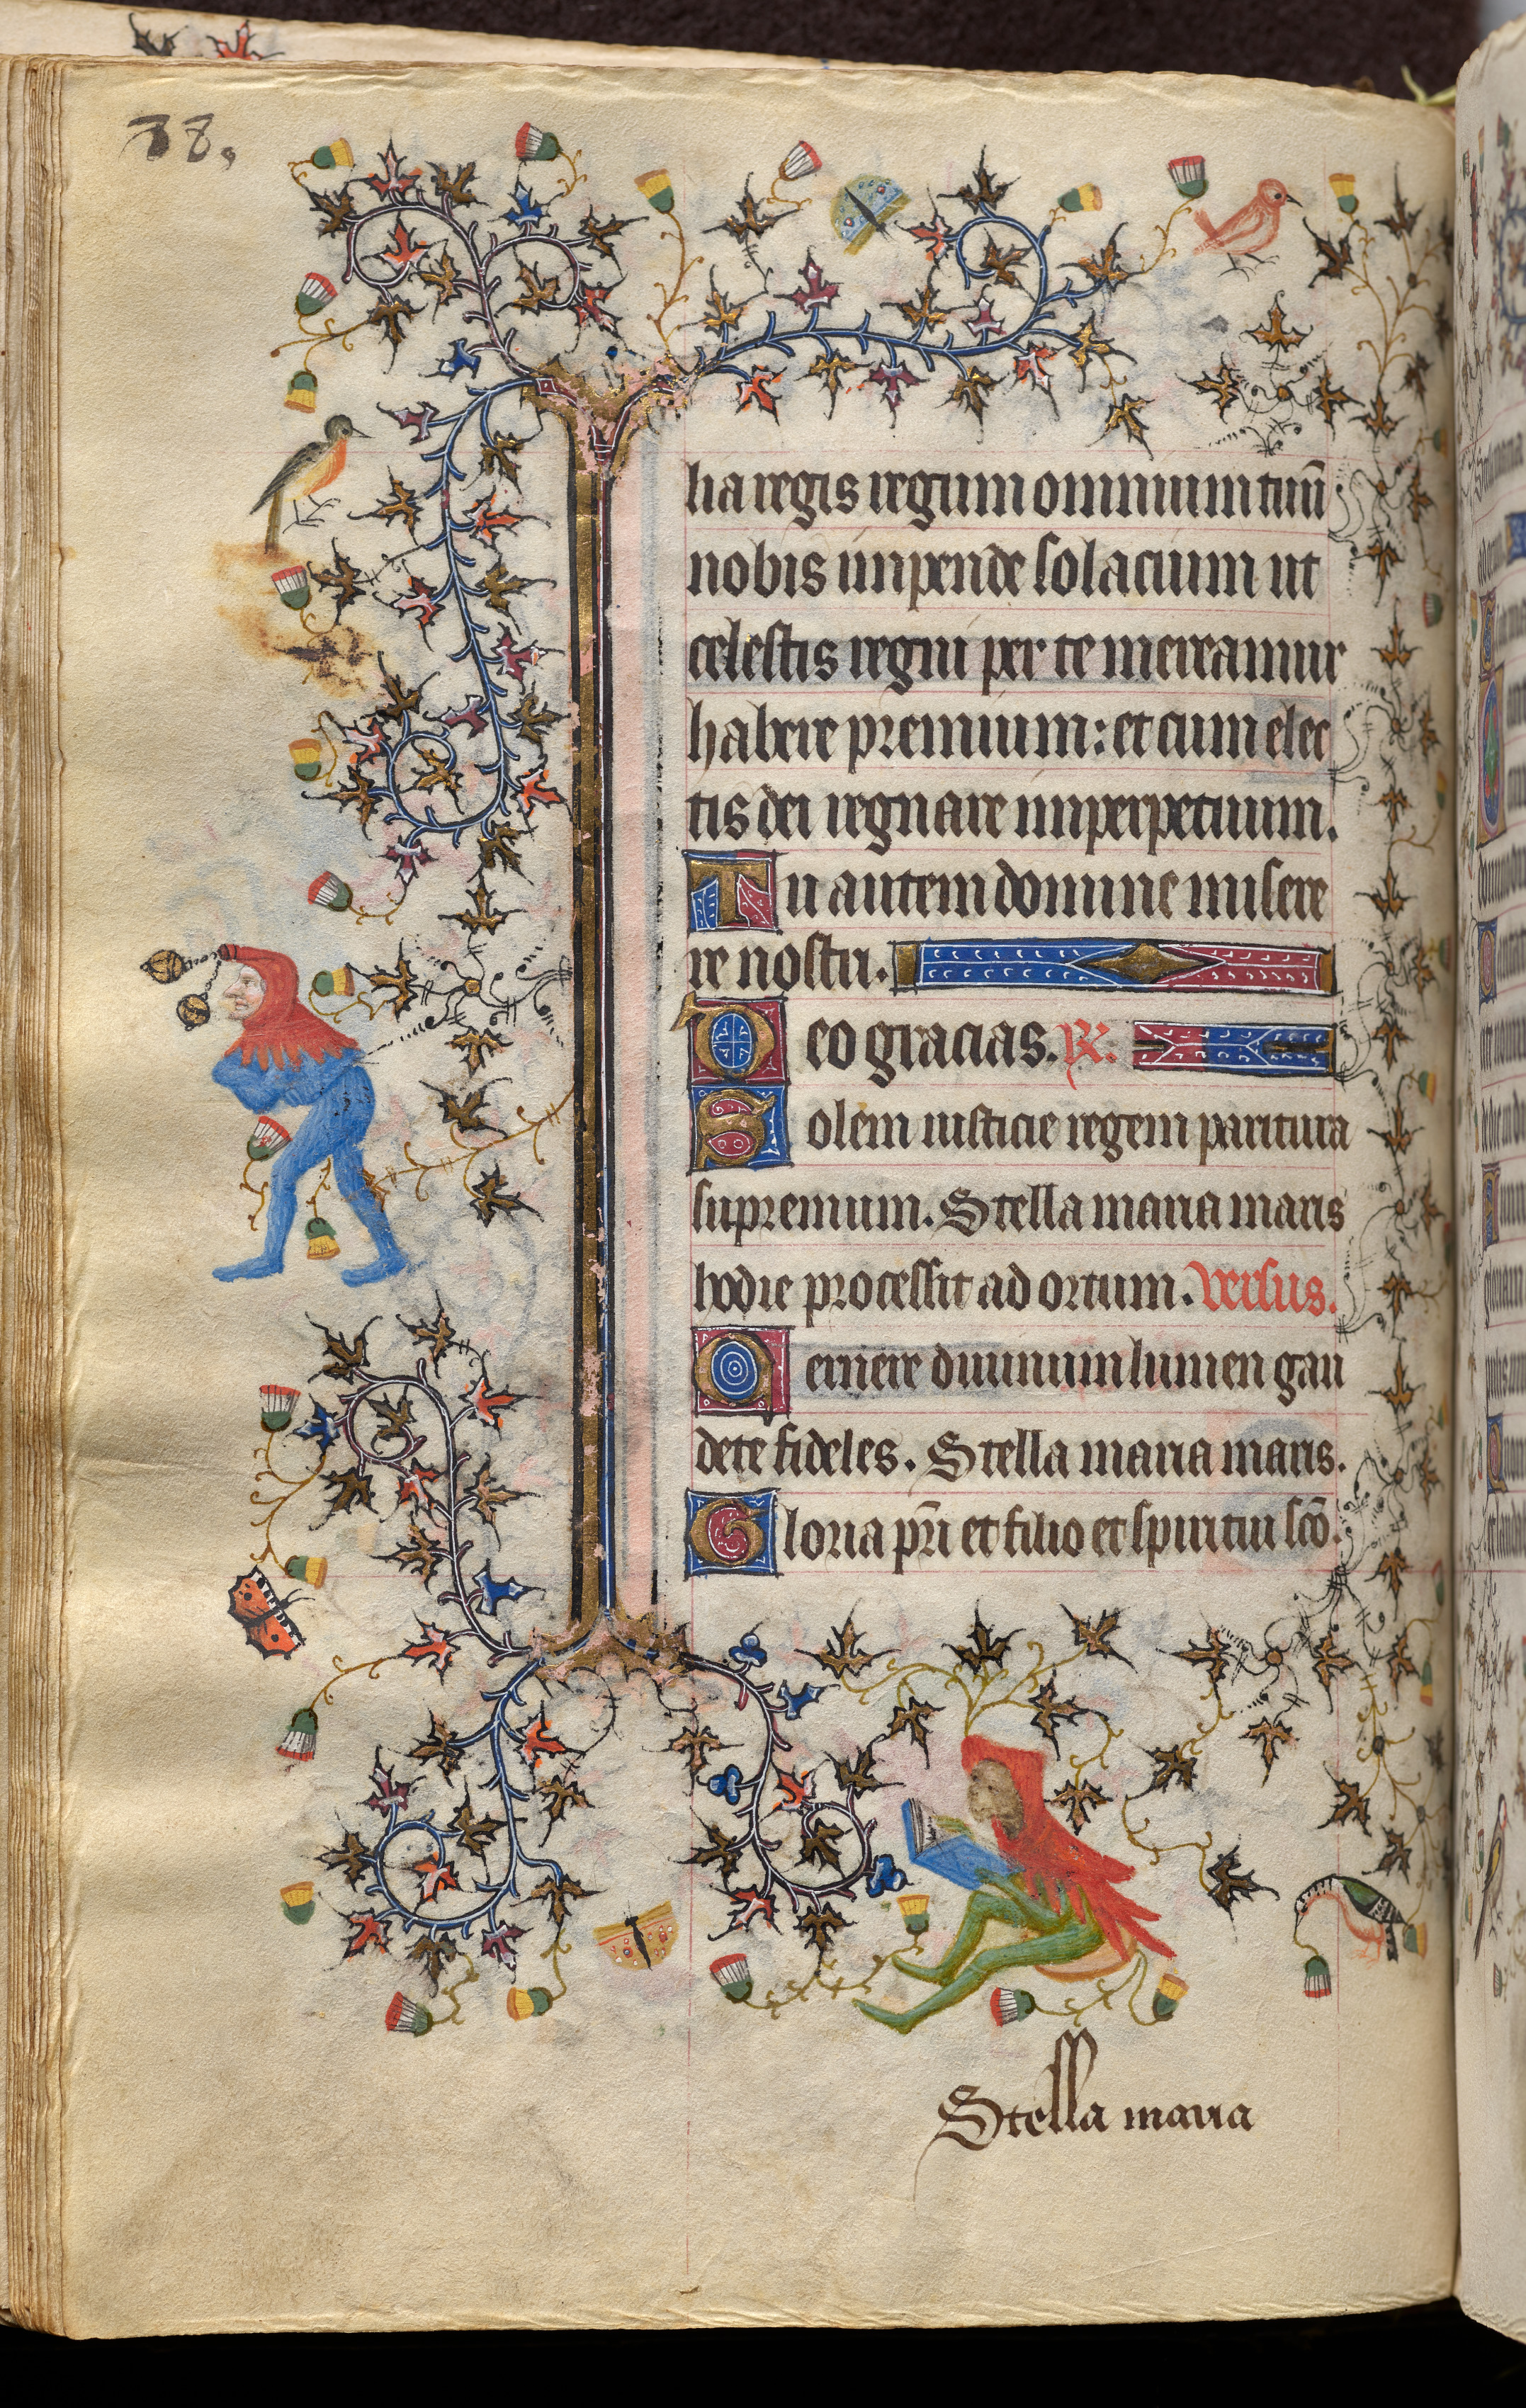 38,
lia regis regum omnium tuũ
nobis impende solacium ut
celestis regni per te mereamur
habere premium: et cum elec
tis dei regnare imperpetuum.
Tu autem domine misere
re nostri.
Deo gracias. R.
Solem iusticie regem paritura
supremum. Stella maria maris
hodie processit ad ortum. Versus.
Cernere diuinum lumen gau
dete fideles. Stella maria maris.
Gloria pr̃i et filio et spiritui sc̃o.
Stella maria